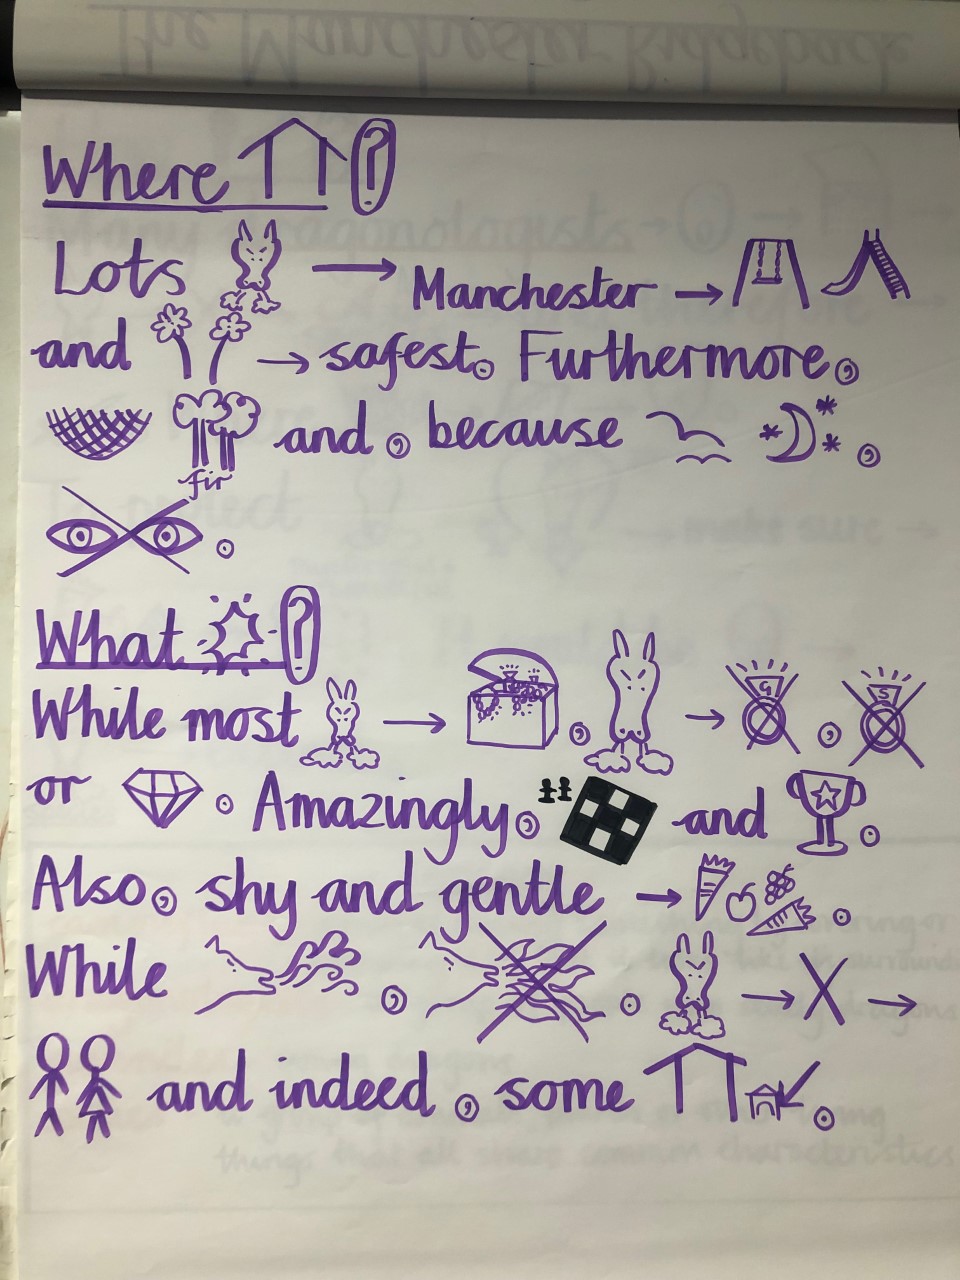 The Manchester Ridgeback
Where ?
Lots Manchester
and safest. Furthermore,
and , because ,
fir
.
What ?
While most , G , S
or . Amazingly, and .
Also, shy and gentle .
While , .
and indeed , some .